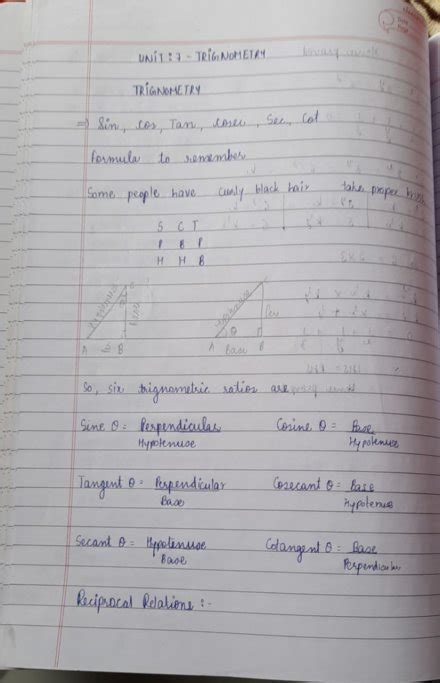 UNIT : 7 - TRIGNOMETRY
TRIGNOMETRY
⇒ Sin, Cos, Tan, Cosec, Sec, Cot
Formula to remember
Some people have curly black hair take proper
S C T
P B P
H H B
Hypotenuse
A B
Hypotenuse
Per
θ
A Base B
So, six trignometric ratios are
Sine θ = Perpendicular / Hypotenuse
Cosine θ = Base / Hypotenuse
Tangent θ = Perpendicular / Base
Cosecant θ = Base / Hypotenus
Secant θ = Hypotenuse / Base
Cotangent θ = Base / Perpendicular
Reciprocal Relations :-